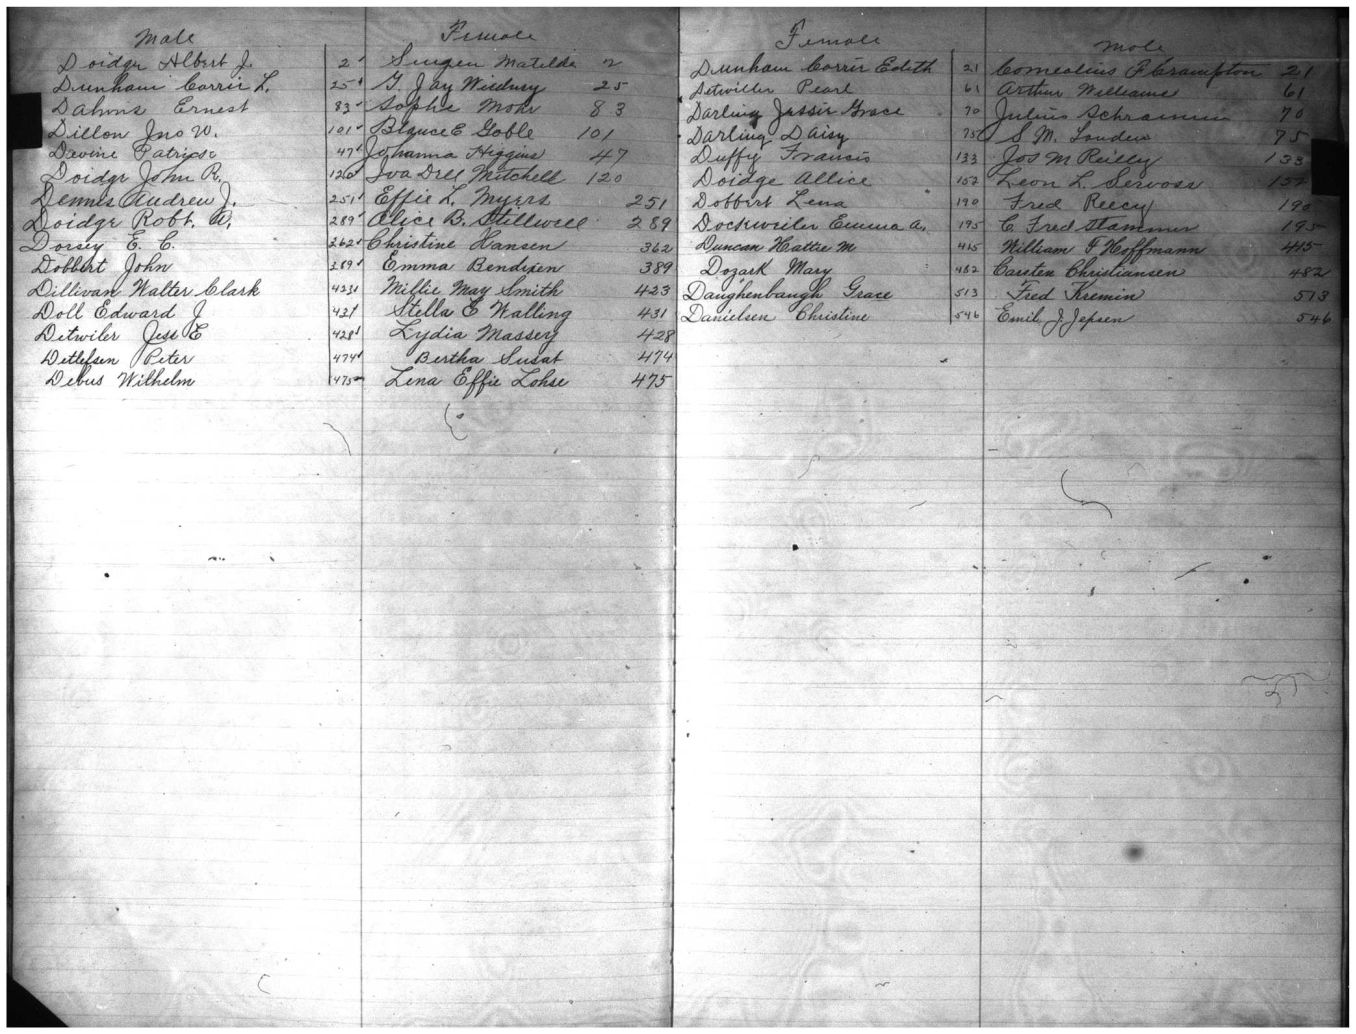 Male Female
Doidge Albert J. 2 Singen Matilda 2
Dunham Carrie L. 25 G. Jay Widbury 25
Dahms Ernest 83 Sophie Mohr 83
Dillon Jno W. 101 Blance E Goble 101
Devine Patrick 47 Johanna Higgins 47
Doidge John R. 120 Iva Dell Mitchell 120
Dennis Andrew J. 251 Effie L. Myers 251
Doidge Robt. A. 289 Alice B. Stillwell 289
Dorsey E. C. 362 Christine Hansen 362
Dobbert John 389 Emma Bendixen 389
Dillivan Walter Clark 423 Millie May Smith 423
Doll Edward J 431 Stella E Walling 431
Detwiler Jess E 428 Lydia Massey 428
Detlefsen Peter 474 Bertha Susat 474
Debus Wilhelm 475 Lena Effie Lohse 475
Female Male
Dunham Carrie Edith 21 Cornealius P Crampton 21
Detwiller Pearl 61 Arthur Williams 61
Darling Jessie Grace 70 Julius Schramm 70
Darling Daisy 75 S. M. 75
Duffy Francis 133 Jos M Reilly 133
Doidge Allice 152 Leon L. Servoss 152
Dobbert Lena 190 Fred Reecy 190
Dockweiler Emma A. 195 C. Fred Stammer 195
Duncan Hattie M 415 William F Hoffmann 415
Dozark Mary 482 Carsten Christiansen 482
Daughenbaugh Grace 513 Fred Kremin 513
Danielsen Christine 546 Emil J Jepsen 546